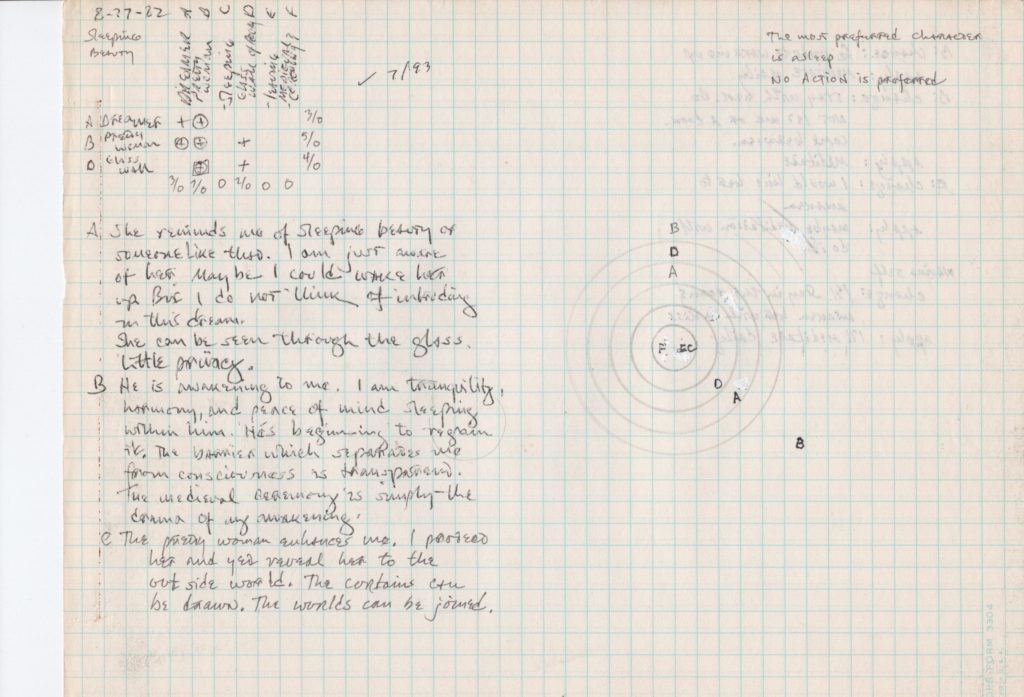 8-27-82 A B C D E F
Sleeping
Beauty
DREAMER
Pretty
woman
-Sleeping
Glass
wall
✓ 7/93
A Dreamer + + 3/0
B pretty
woman + + + 5/0
D Glass
wall + + 4/0
3/0 7/0 0 2/0 0 0
The most preferred character
is asleep
NO ACTION is preferred
A She reminds me of Sleeping beauty or
someone like this. I am just aware
of her. Maybe I could wake her
up But I do not think of intruding
in this dream.
She can be seen through the glass.
Little privacy.
B He is awakening to me. I am tranquility,
harmony, and peace of mind sleeping
within him. He's beginning to regain
it. The barrier which separates me
from consciousness is
The medieval ceremony is simply the
drama of my awakening.
C The pretty woman enhances me. I protect
her and yet reveal her to the
out side world. The curtains can
be drawn. The worlds can be joined.
B
D
A
F E C
D
A
B
FORM 3304